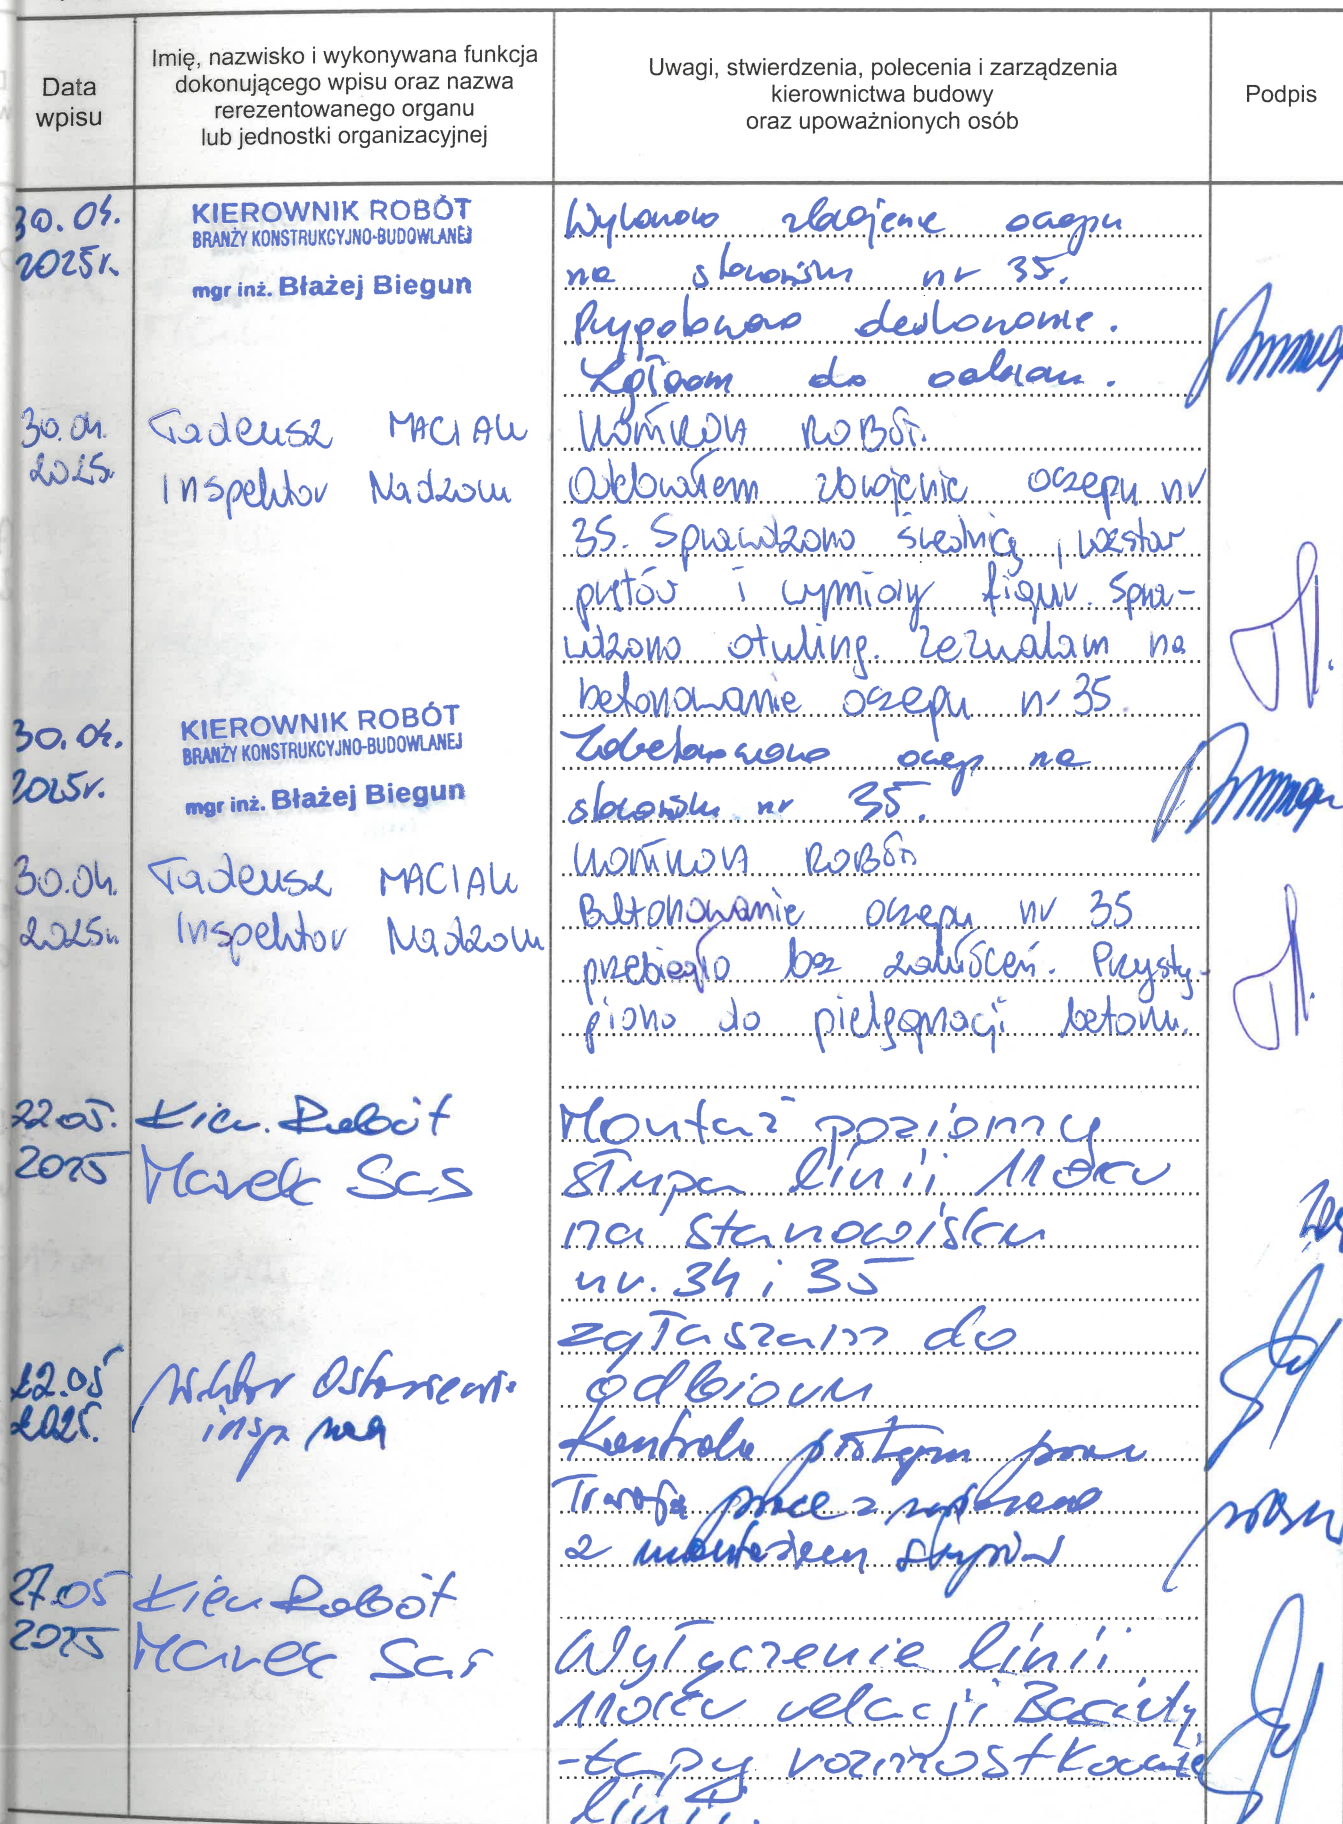 Data
wpisu
Imię, nazwisko i wykonywana funkcja
dokonującego wpisu oraz nazwa
rerezentowanego organu
lub jednostki organizacyjnej
Uwagi, stwierdzenia, polecenia i zarządzenia
kierownictwa budowy
oraz upoważnionych osób
Podpis
30.04.
2025r.
KIEROWNIK ROBÓT
BRANŻY KONSTRUKCYJNO-BUDOWLANEJ
mgr inż. Błażej Biegun
Wykonano zbrojenie oczepu
na stanowisku nr 35.
Przygotowano deskowanie.
Zgłaszam do odbioru.
30.04.
2025r.
Tadeusz MACIAK
Inspektor Nadzoru
KONTROLA ROBÓT.
Odebrałem zbrojenie oczepu nr
35. Sprawdzono średnicę, rozstaw
prętów i wymiary figur. Spra-
wdzono otulinę. Zezwalam na
betonowanie oczepu nr 35.
30.04.
2025r.
KIEROWNIK ROBÓT
BRANŻY KONSTRUKCYJNO-BUDOWLANEJ
mgr inż. Błażej Biegun
Zabetonowano oczep na
stanowisku nr 35.
30.04.
2025r.
Tadeusz MACIAK
Inspektor Nadzoru
KONTROLA ROBÓT
Betonowanie oczepu nr 35
przebiegło bez zakłóceń. Przystą-
piono do pielęgnacji betonu.
22.05.
2025
Kier. Robót
Marek Sas
Montaż poziomy
słupa linii 110kV
na stanowisku
nr. 34 i 35
zgłaszam do
odbioru
22.05
2025.
insp nad
Kontrola postępu prac
Trwają prace związane
z montażem słupów
27.05
2025
Kier Robót
Marek Sas
Wyłączenie linii
110kV relacji
-Łapy rozmostkowanie
linii.